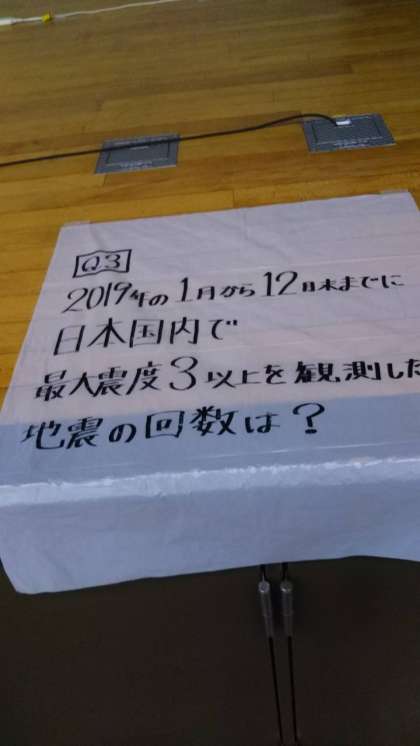 Q3
2019年の1月から12日末までに
日本国内で
最大震度3以上を観測した
地震の回数は?